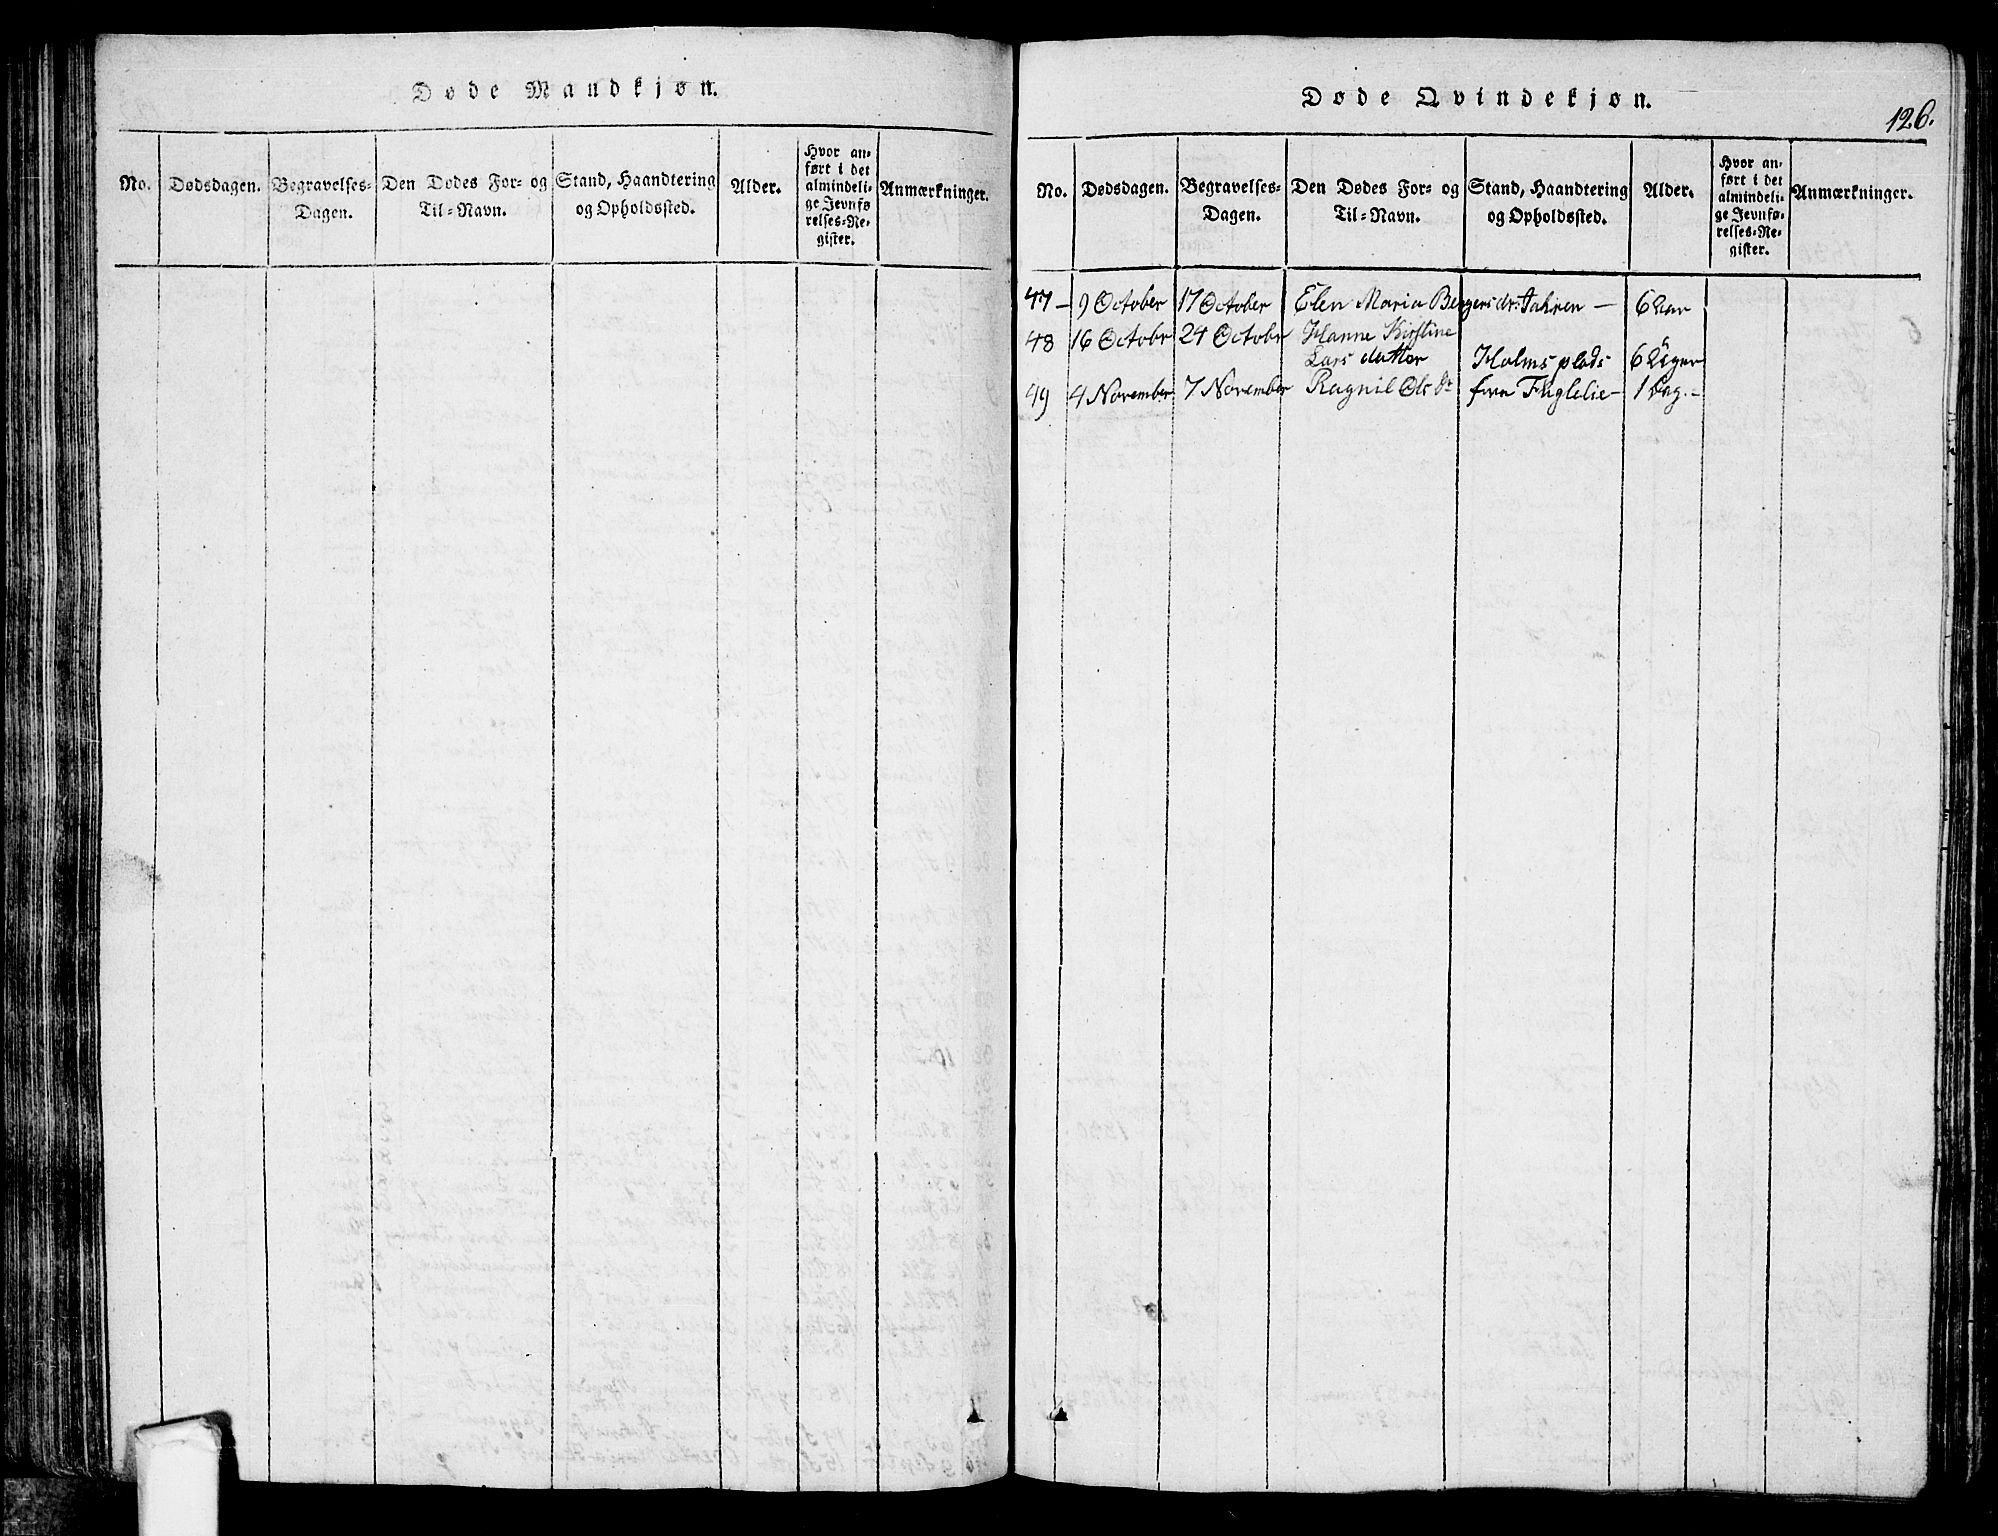 Døde Mandkjøn.
No. Dødsdagen. Begravelses-Dagen. Den Dødes For- og Til-Navn. Stand, Haandtering og Opholdssted. Alder. Hvor anført i det almindelige Jevnførelses-Register. Anmærkninger.
Døde Qvindekjøn.
126.
No. Dødsdagen. Begravelses-Dagen. Den Dødes For- og Til-Navn. Stand, Haandtering og Opholdssted. Alder. Hvor anført i det almindelige Jevnførelses-Register. Anmærkninger.
47 – 9 October 17 October Elen Maria Bergersdr: Jahren – 6 Aar
48 16 Octobr 24 Octobr Hanne Kirstine
Lars datter Holms plads 6 Uger
49 4 November 7 November Ragnil Ols dr fra Fuglelie – 1 Dag. –